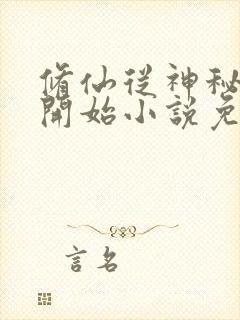 脩仙從神秘
開始小說免
言名